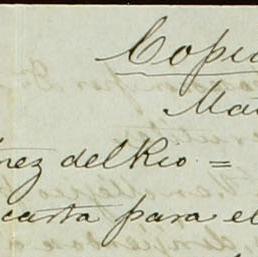 Copia
Ma
nez del Rio =
carta para el